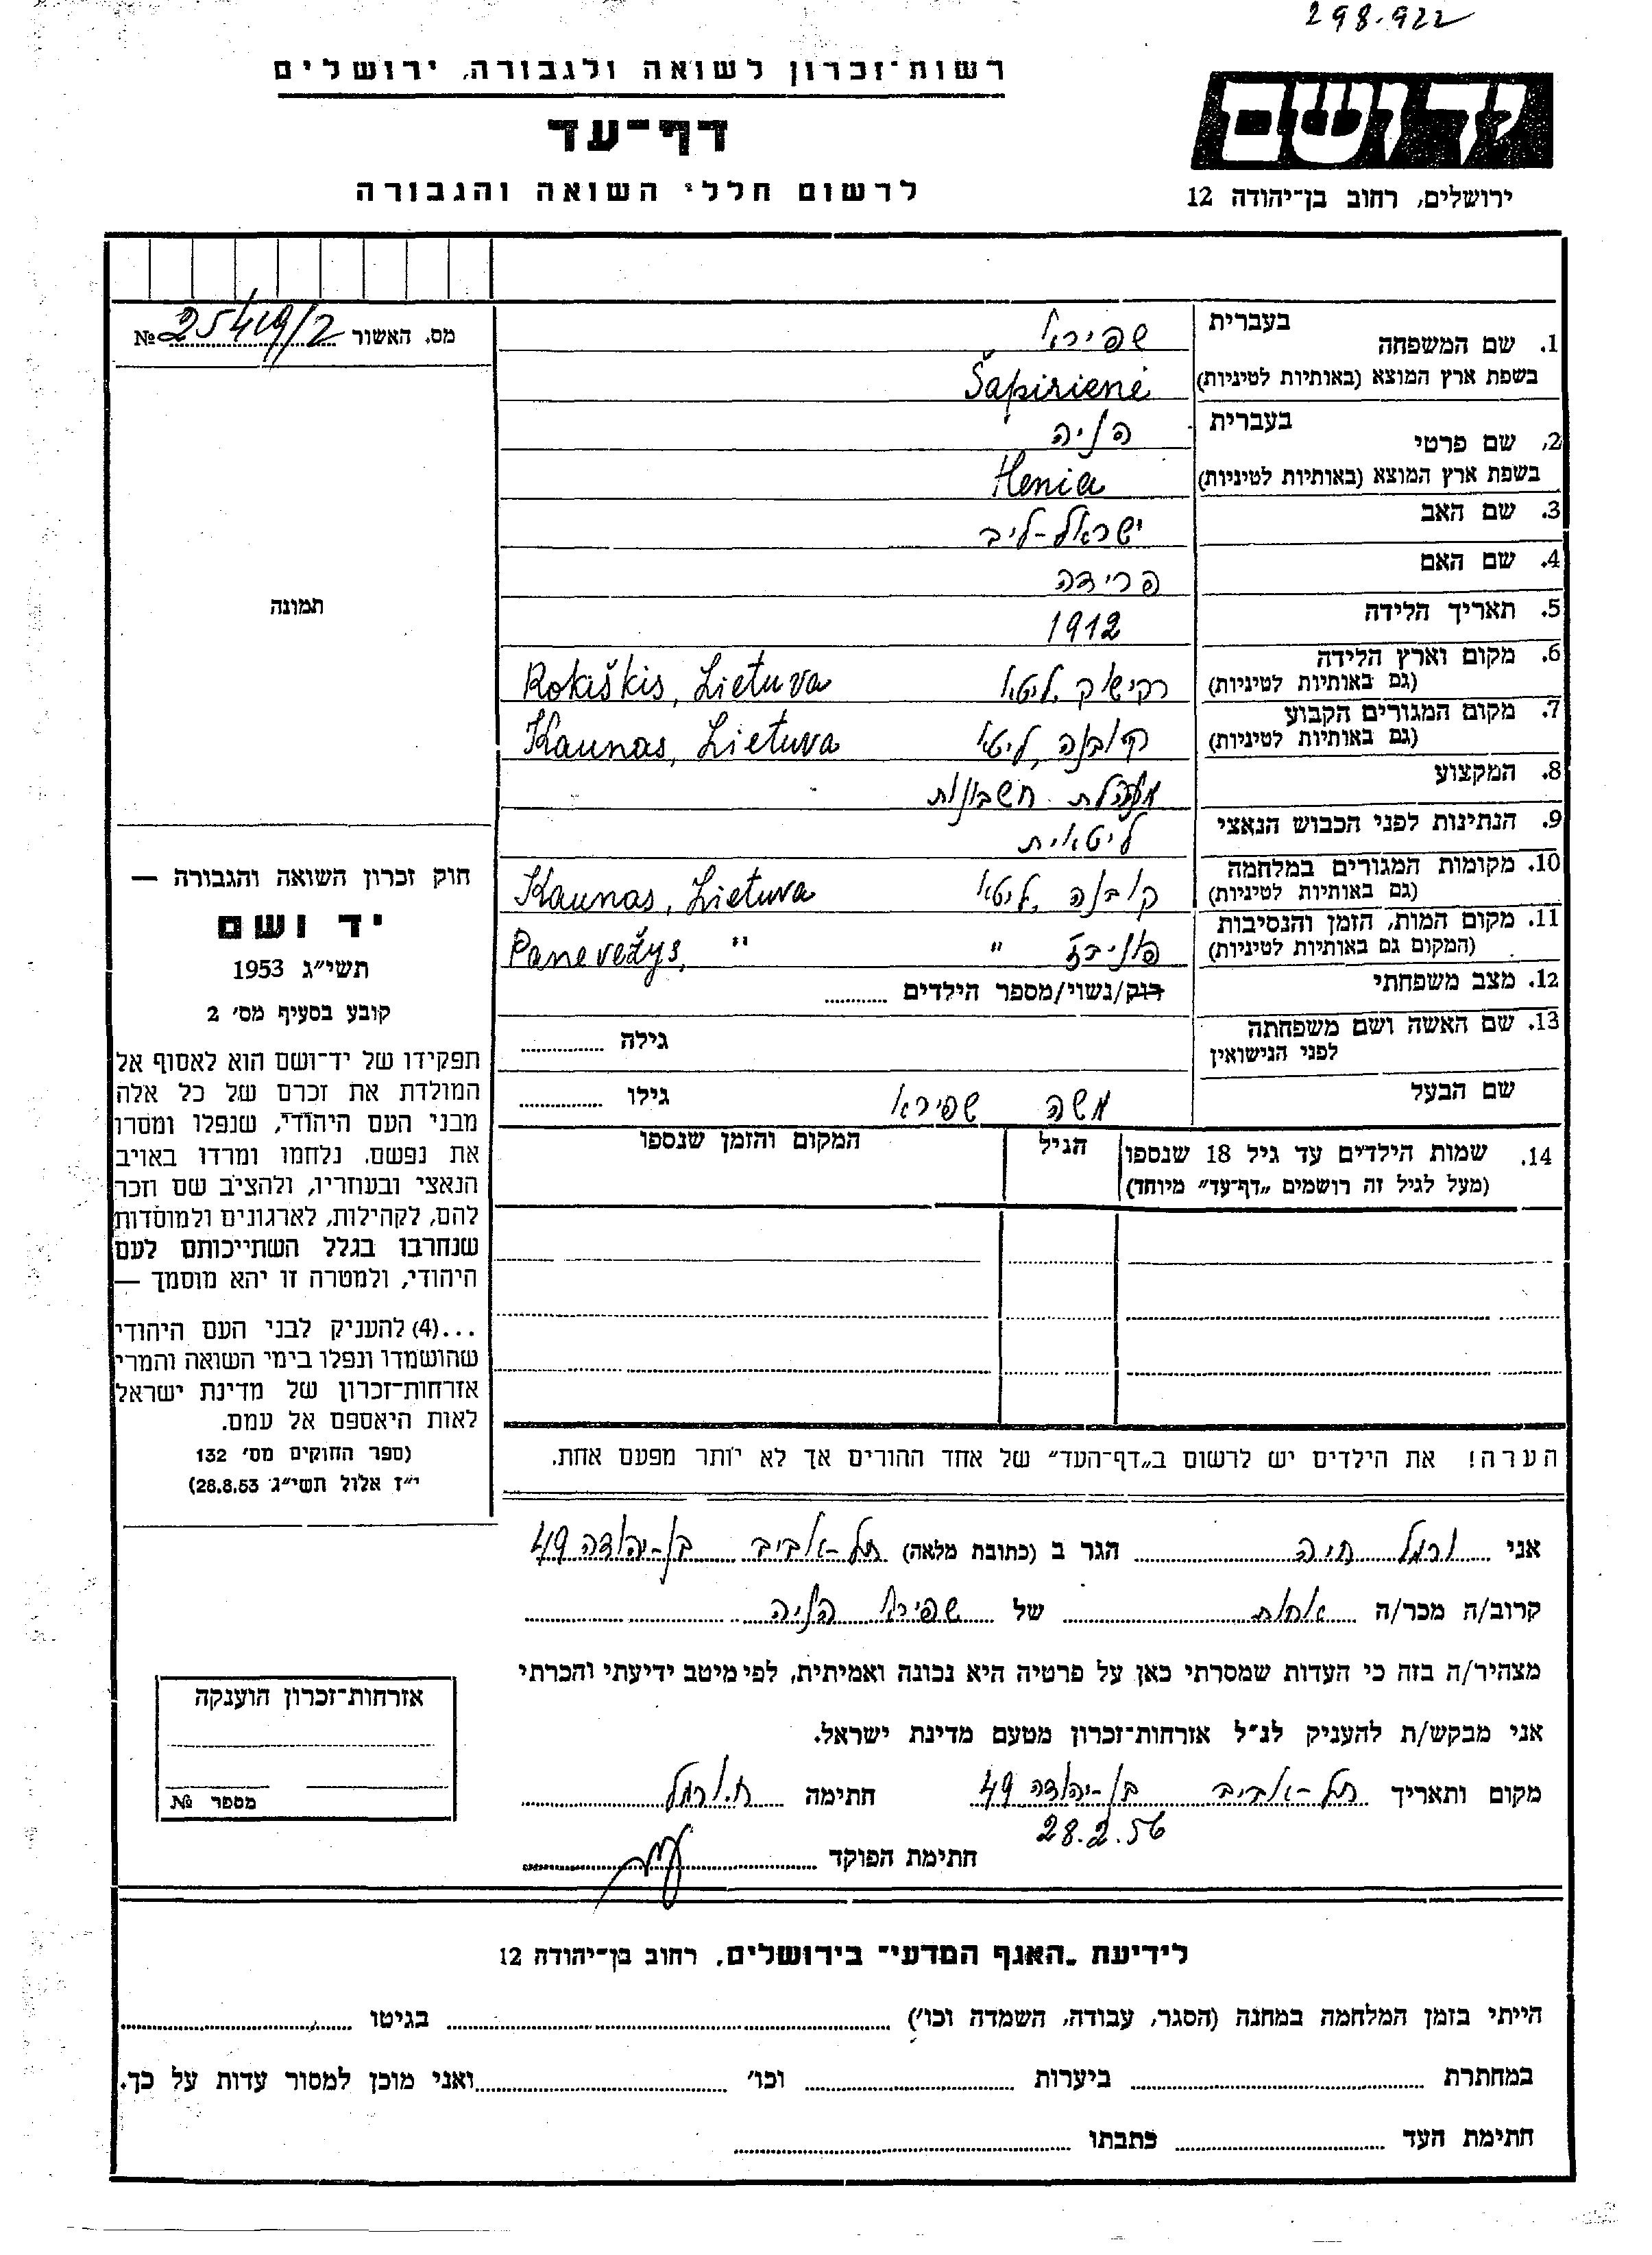 298.922
רשות־זכרון לשואה ולגבורה, ירושלים
יד ושם
דף־עד
לרשום חללי השואה והגבורה
ירושלים, רחוב בן־יהודה 12
מס. האשור 25419/2 №
1. שם המשפחה בעברית שפירא
בשפת ארץ המוצא (באותיות לטיניות) Šapirienė
2. שם פרטי בעברית הניה
בשפת ארץ המוצא (באותיות לטיניות) Henia
3. שם האב ישראל-ליב
4. שם האם פרידה
5. תאריך הלידה 1912
6. מקום וארץ הלידה (גם באותיות לטיניות) רקישוק ליטא Rokiškis, Lietuva
7. מקום המגורים הקבוע (גם באותיות לטיניות) קובנה, ליטא Kaunas, Lietuva
8. המקצוע מנהלת חשבונות
9. הנתינות לפני הכבוש הנאצי ליטאית
10. מקומות המגורים במלחמה (גם באותיות לטיניות) קובנה, ליטא Kaunas, Lietuva
11. מקום המות, הזמן והנסיבות (המקום גם באותיות לטיניות) פוניבז " Panevežys, "
12. מצב משפחתי רוק/נשוי/מספר הילדים
13. שם האשה ושם משפחתה לפני הנישואין גילה
שם הבעל משה שפירא גילו
14. שמות הילדים עד גיל 18 שנספו (מעל לגיל זה רושמים „דף־עד” מיוחד) הגיל המקום והזמן שנספו
תמונה
חוק זכרון השואה והגבורה —
יד ושם
תשי״ג 1953
קובע בסעיף מס׳ 2
תפקידו של יד־ושם הוא לאסוף אל
המולדת את זכרם של כל אלה
מבני העם היהודי, שנפלו ומסרו
את נפשם, נלחמו ומרדו באויב
הנאצי ובעוזריו, ולהציב שם וזכר
להם, לקהילות, לארגונים ולמוסדות
שנחרבו בגלל השתייכותם לעם
היהודי, ולמטרה זו יהא מוסמך —
...(4) להעניק לבני העם היהודי
שהושמדו ונפלו בימי השואה והמרי
אזרחות־זכרון של מדינת ישראל
לאות היאספם אל עמם.
(ספר החוקים מס׳ 132
י״ז אלול תשי״ג 28.8.53)
הערה! את הילדים יש לרשום ב„דף־העד” של אחד ההורים אך לא יותר מפעם אחת.
אני ורמל חיה הגר ב (כתובת מלאה) תל-אביב בן-יהודה 49
קרוב/ה מכר/ה אחות של שפירא הניה
מצהיר/ה בזה כי העדות שמסרתי כאן על פרטיה היא נכונה ואמיתית, לפי מיטב ידיעתי והכרתי
אני מבקש/ת להעניק לנ״ל אזרחות־זכרון מטעם מדינת ישראל.
מקום ותאריך תל-אביב בן-יהודה 49 חתימה ח. ורמל
28.2.56
חתימת הפוקד
אזרחות־זכרון הוענקה
מספר №
לידיעת „האגף המדעי” בירושלים, רחוב בן־יהודה 12
הייתי בזמן המלחמה במחנה (הסגר, עבודה, השמדה וכו׳) בגיטו
במחתרת ביערות וכו׳ ואני מוכן למסור עדות על כך.
חתימת העד כתבתו